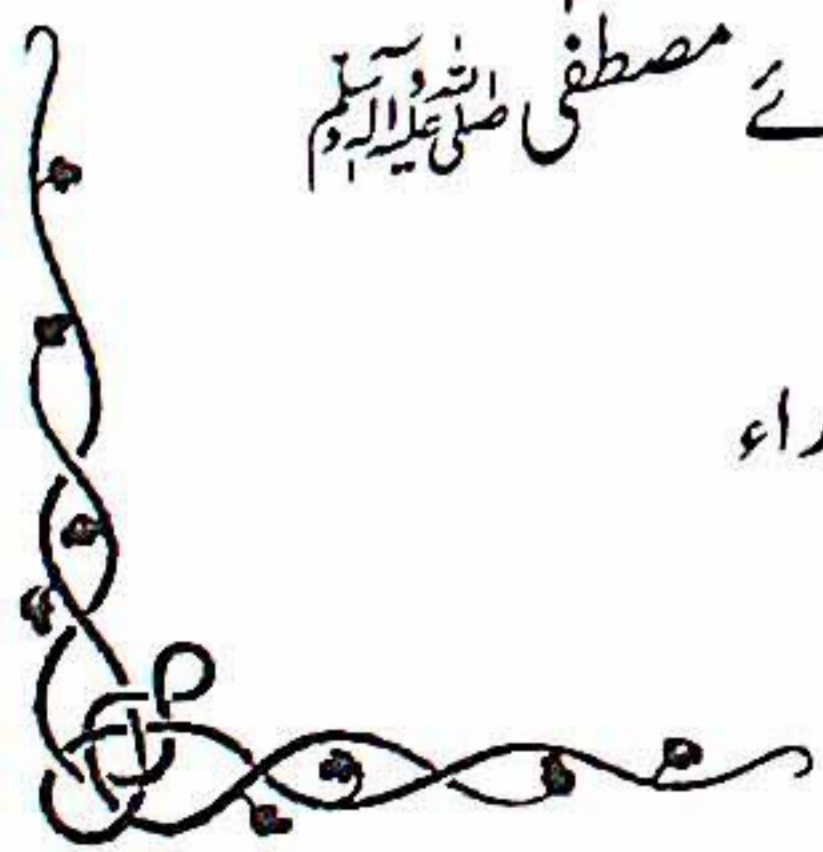 ئے مصطفی صلی اللہ علیہ وآلہ وسلم
راء